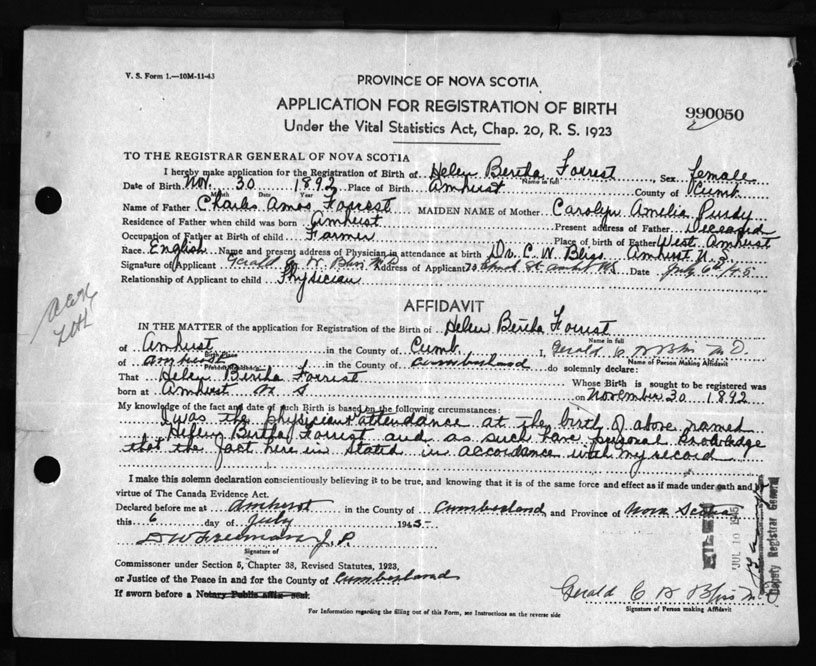 V. S. Form 1.—10M-11-43
PROVINCE OF NOVA SCOTIA
APPLICATION FOR REGISTRATION OF BIRTH
990050
Under the Vital Statistics Act, Chap. 20, R. S. 1923
TO THE REGISTRAR GENERAL OF NOVA SCOTIA
I hereby make application for the Registration of Birth of Helen Bertha Forrest, Sex female
Name in full
Date of Birth Nov. 30 1892 Place of Birth Amherst County of Cumb.
Month Date Year
Name of Father Charles Amos Forrest MAIDEN NAME of Mother Carolyn Amelia Purdy
Residence of Father when child was born Amherst Present address of Father Deceased
Occupation of Father at Birth of child Farmer Place of birth of Father West Amherst
Race English Name and present address of Physician in attendance at birth Dr. C. W. Bliss Amherst N. S.
Signature of Applicant Gerald C W Bliss M D Address of Applicant St Amherst N.S. Date July 6th/45
Relationship of Applicant to child Physician
AFFIDAVIT
IN THE MATTER of the application for Registration of the Birth of Helen Bertha Forrest
Name in full
of Amherst in the County of Cumb. I, Gerald C W Bliss M D.
Birth Place
Name of Person Making Affidavit
of Amherst in the County of Cumberland do solemnly declare:
Present Residence
That Helen Bertha Forrest Whose Birth is sought to be registered was
born at Amherst N S on November 30 1892
My knowledge of the fact and date of such Birth is based on the following circumstances:
I was the physician attendance at the birth of above named
Helen Bertha Forrest and as such have personal knowledge
that the fact here in stated in accordance with my record
I make this solemn declaration conscientiously believing it to be true, and knowing that it is of the same force and effect as if made under oath and by
virtue of The Canada Evidence Act.
Declared before me at Amherst in the County of Cumberland, and Province of Nova Scotia
this 6 day of July 1945-
D W Freeman J. P.
Signature of
Commissioner under Section 5, Chapter 38, Revised Statutes, 1923,
or Justice of the Peace in and for the County of Cumberland
If sworn before a Notary Public affix seal.
Gerald C W Bliss M D
Signature of Person making Affidavit
For Information regarding the filling out of this Form, see Instructions on the reverse side
FILED
JUL 10 1945
Deputy Registrar General